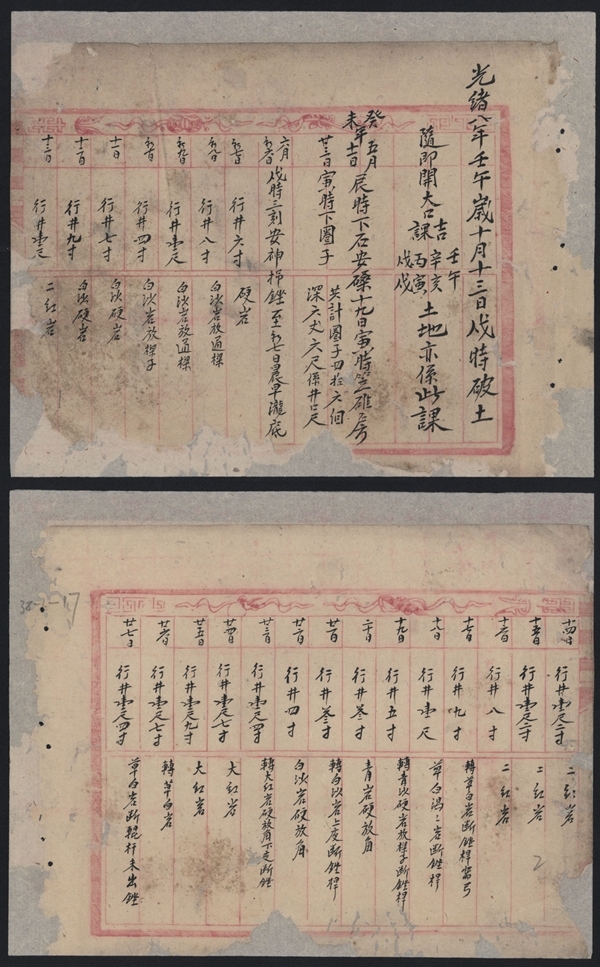 光緒八年壬午歲十月十三日戌時破土
隨即開大口吉課 壬午 辛亥 丙寅 戊戌 土地亦係此課
癸未年五月十二日辰時下石安磉十九日寅時竪碓房
廿三日寅時下圈子 共計圈子四拾六個
深六丈六尺係井口尺
六月初六日 戌時三刻安神搗銼至初七日晨早瀧底
初七日 行井六寸 硬岩
初八日 行井八寸 白沙岩放通樑
初九日 行井壹尺 白沙岩放通樑
初十日 行井四寸 白沙岩放樑子
十一日 行井七寸 白沙硬岩
十二日 行井九寸 白沙硬岩
十三日 行井壹尺 二紅岩
十四日 行井壹尺二寸 二紅岩
十五日 行井壹尺二寸 二紅岩
十六日 行井八寸 二紅岩
十七日 行井九寸 轉草白岩斷銼桿
十八日 行井壹尺 草白 岩斷銼桿
十九日 行井五寸 轉青沙硬岩放樑子斷銼桿
二十日 行井叁寸 青岩硬放角
廿一日 行井叁寸 轉白沙岩 斷銼桿
廿二日 行井四寸 白沙岩硬放角
廿三日 行井壹尺四寸 轉大紅岩硬放角下定斷銼
廿四日 行井壹尺七寸 大紅岩
廿五日 行井壹尺九寸 大紅岩
廿六日 行井壹尺七寸 轉草白岩
廿七日 行井壹尺四寸 草白岩斷 杆未出銼
38-7-17
2